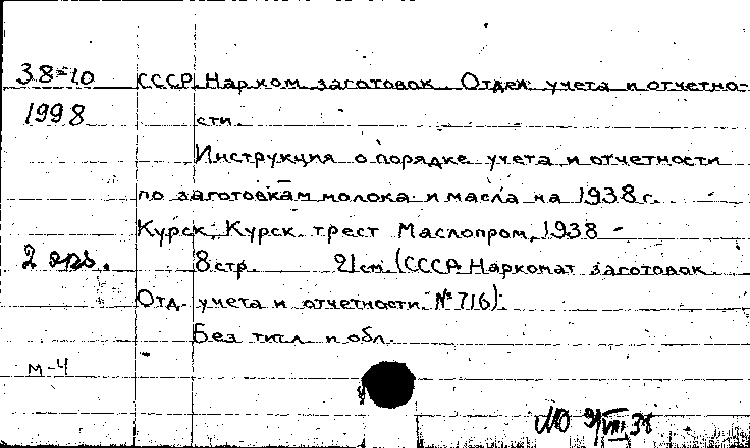 38-10 СССР. Нар.ком. заготовок. Отдел учета и отчетно-
1998 сти.
Инструкция о порядке учета и отчетности
по заготовкам молока и масла на 1938 г.
Курск, Курск. трест Маслопром, 1938 -
2 экз. 8 стр. 21 см. (СССР. Наркомат заготовок.
Отд. учета и отчетности. № 716).
Без титл. и обл.
м-4
МО 9/VIII 38